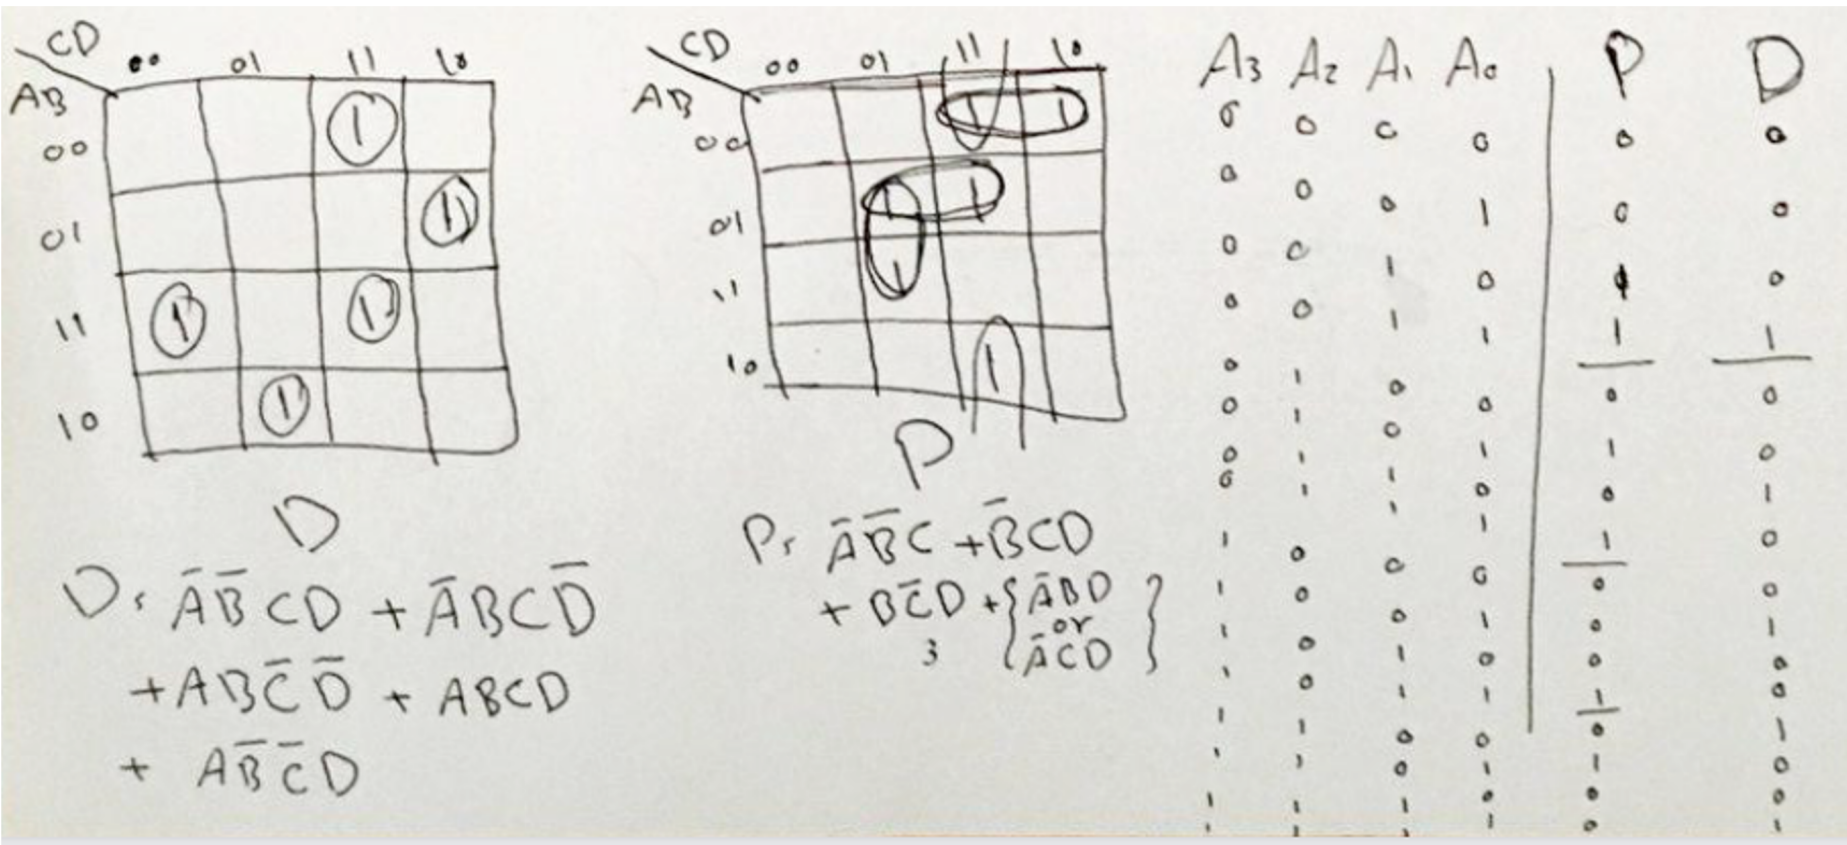 CD
00 01 11 10
AB
00 1
01 1
11 1 1
10 1
D
D = A̅ B̅ C D + A̅ B C D̅
+ A B C̅ D̅ + A B C D
+ A B̅ C̅ D
CD
00 01 11 10
AB
00 1 1
01 1 1
11 1
10 1
P
P = A̅ B̅ C + B̅ C D
+ B C̅ D + { A̅ B D
or
A̅ C D }
A3 A2 A1 A0 P D
0 0 0 0 0 0
0 0 0 1 0 0
0 0 1 0 1 0
0 0 1 1 1 1
0 1 0 0 0 0
0 1 0 1 1 0
0 1 1 0 0 1
0 1 1 1 1 0
1 0 0 0 0 0
1 0 0 1 0 1
1 0 1 0 0 0
1 0 1 1 1 0
1 1 0 0 0 1
1 1 0 1 1 0
1 1 1 0 0 0
1 1 1 1 0 1